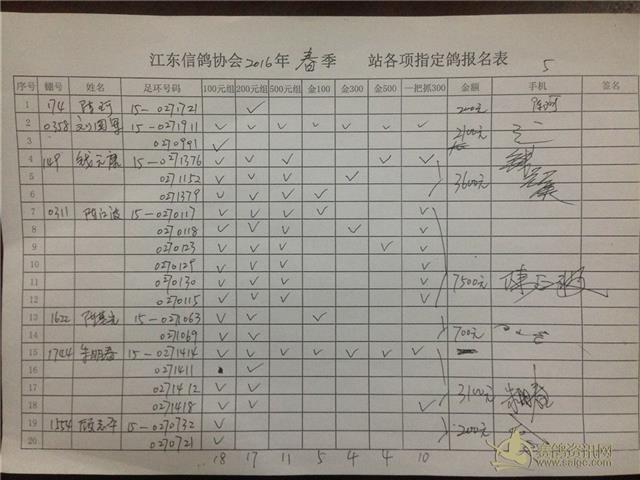 江东信鸽协会2016年 春季 站各项指定鸽报名表 5
序号 棚号 姓名 足环号码 100元组 200元组 500元组 金100 金300 金500 一把抓300 金额 手机 签名
1 174 陈珂 15-0271721 ✓ 200元 陈珂
2 0358 刘国军 15-0271911 ✓ ✓ ✓ ✓ ✓ ✓ ✓ 2100元
3 0270991 ✓
4 149 15-0271376 ✓ ✓ ✓ ✓ ✓
5 0271152 ✓ ✓ ✓ ✓ 3600元
6 0271379 ✓ ✓ ✓ ✓
7 0311 陈江波 15-0270117 ✓ ✓ ✓ ✓ ✓
8 0270118 ✓ ✓ ✓ ✓ ✓
9 0270123 ✓ ✓ ✓ ✓ ✓
10 0270129 ✓ ✓ ✓ ✓
11 0270130 ✓ ✓ ✓ ✓ 7500元
12 0270115 ✓ ✓ ✓ ✓
13 1622 15-0271063 ✓ ✓ ✓
14 0271069 ✓ ✓ 700元
15 1744 朱明春 15-0271414 ✓ ✓ ✓ ✓ ✓ ✓ ✓
16 0271411 ✓
17 0271412 ✓ ✓ 3100元 朱明春
18 0271418 ✓ ✓ ✓ ✓
19 1554 顾志平 15-0270732 ✓ 200元
20 0270721 ✓
18 17 11 5 4 4 10
赛鸽资讯网
www.saigc.com